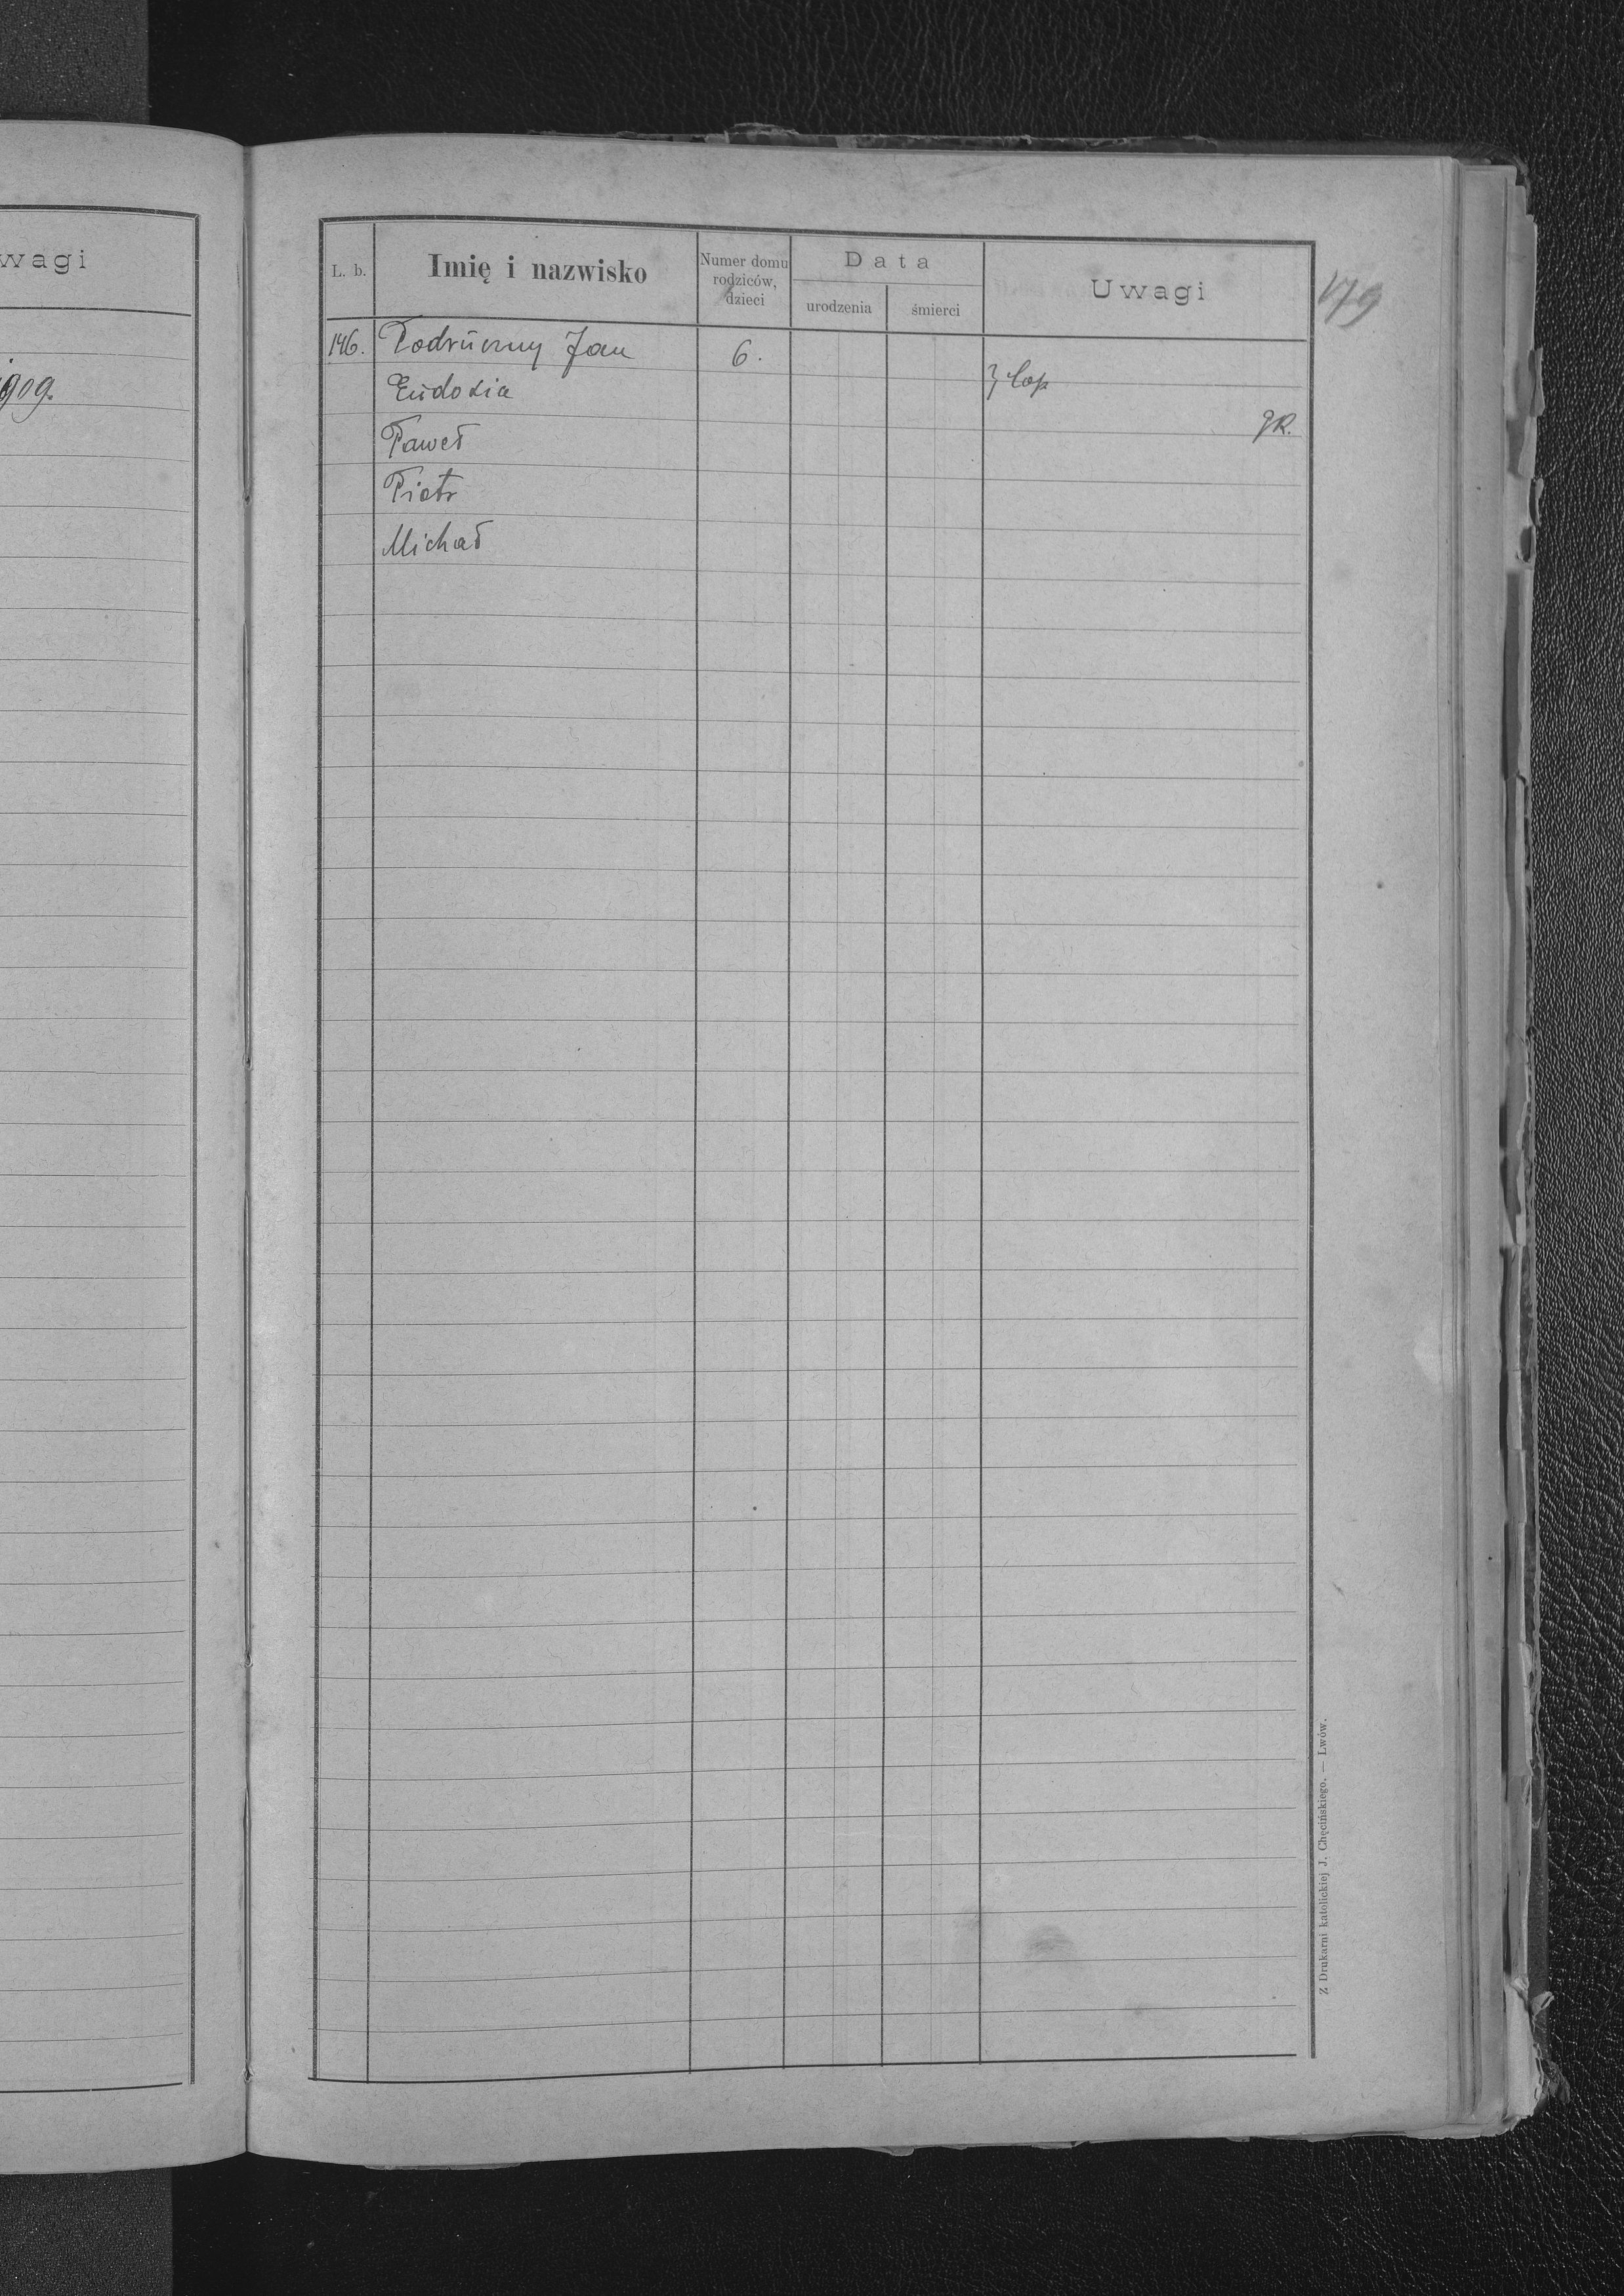 wagi
1909.
L. b.
Imię i nazwisko
Numer domu
rodziców,
dzieci
Data
urodzenia
śmierci
Uwagi
179
146. Podruczny Jan 6.
Eudoxia } cop
Paweł gR.
Piotr
Michał
Z Drukarni katolickiej J. Chęcińskiego. — Lwów.